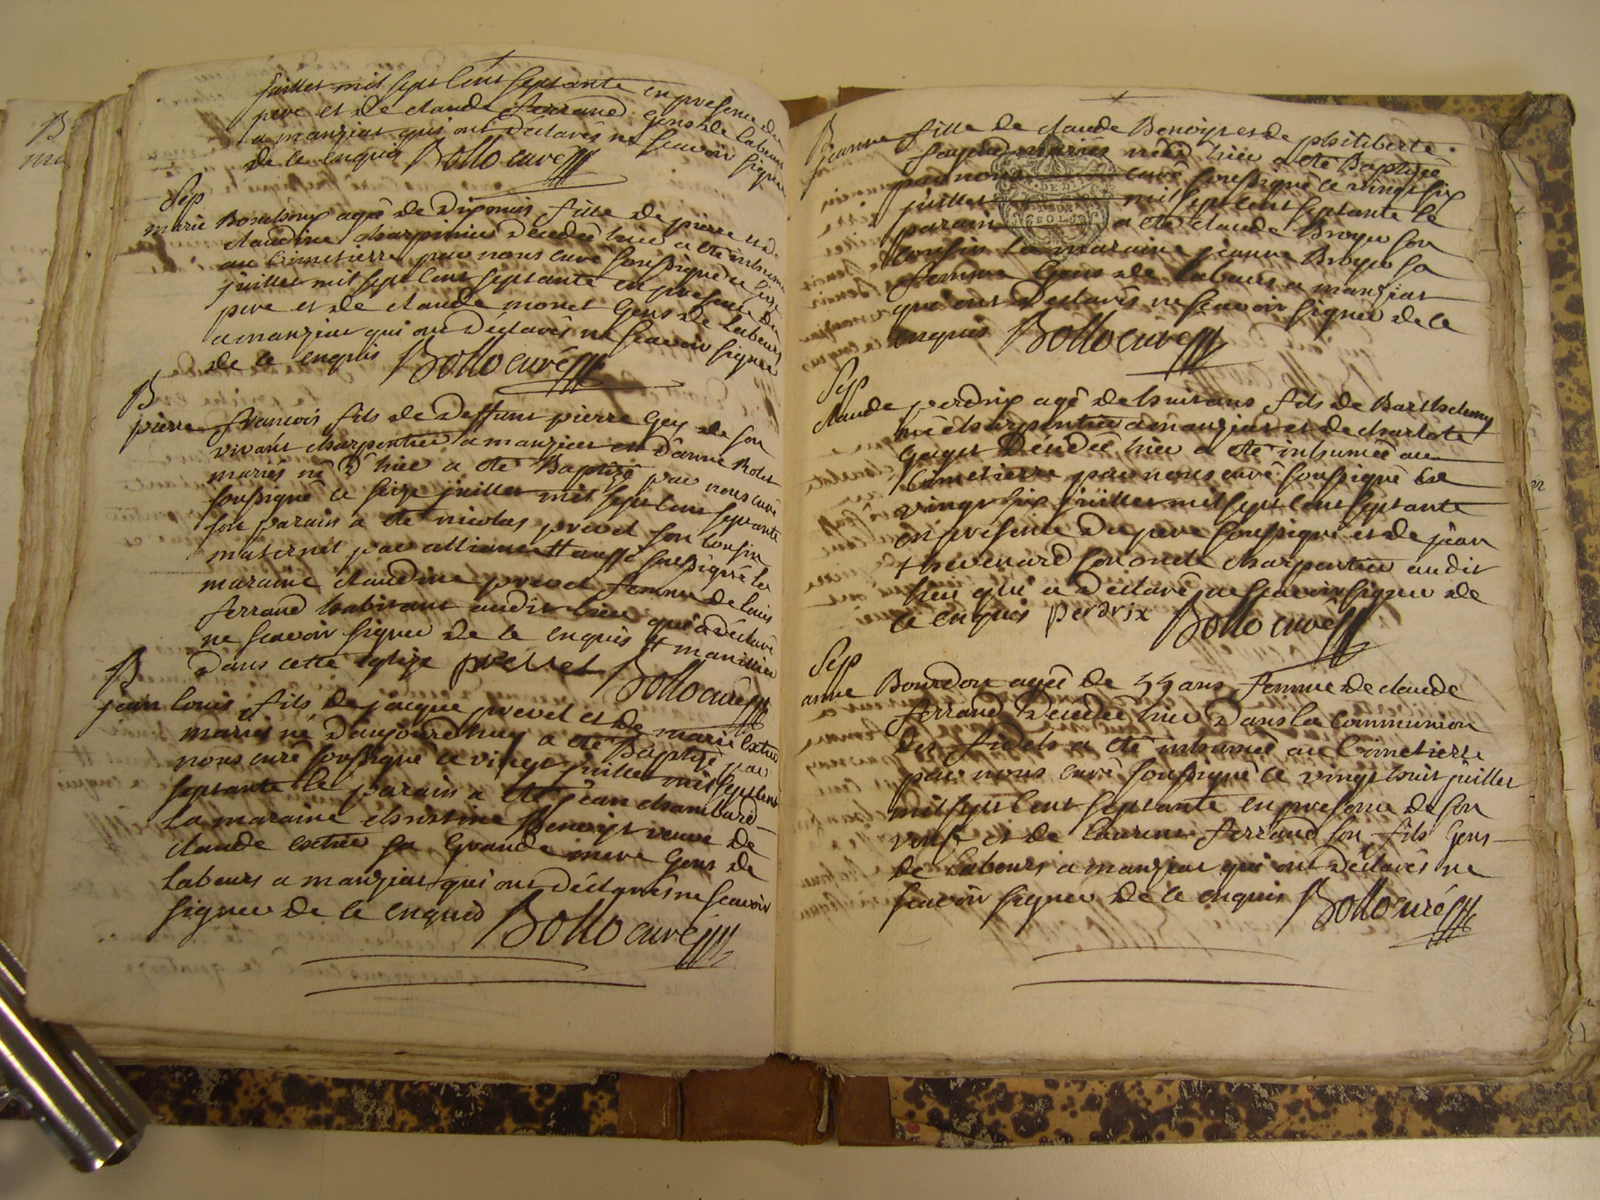 juillet mil sept cent septante en presence du
pere et de claude ferrand gens de labeurs
a manziat qui ont déclarés ne scavoir signer
de ce enquis Bollo curé
Sep
marie agé de dix mois fille de pierre et de
claudine charpentier décédée hier a été inhumée
au cimetierre par nous curé soussigné ce
juillet mil sept cent septante en presence du
pere et de claude monet gens de labeurs
a manziat qui ont déclarés ne scavoir signer
de ce enquis Bollo curé
B
pierre francois fils de deffunt pierre Gey de son
vivant charpentier a manziat et d'anne
mariés né d'hier a été Baptizé par nous curé
soussigné ce seize juillet mil sept cent septante
son parain a été nicolas prevel son cousin
maternel par alliance H aussi soussigné la
maraine claudine prevel femme de louis
ferrand habitant audit lieu qui a déclaré
ne scavoir signer de ce enquis H
dans cette eglize prevel Bollo curé
B
jean louis fils de jacque prevel et de marie
mariés né d'aujourd'huy a été Baptizé par
nous curé soussigné ce vingt juillet mil sept cent
septante le parain a été jean chambard
la maraine christine Benoist veuve de
claude sa grande mere gens de
labeurs a manziat qui ont déclarés ne scavoir
signer de ce enquis Bollo curé
B
jeanne fille de claude Benoist et de philiberte
mariés née d'hier a été Baptizée
par nous curé soussigné ce vingt six
juillet mil sept cent septante le
parain a été claude Broyer son
cousin la maraine jeanne Broyer sa
gens de labeurs a manziat
qui ont déclarés ne scavoir signer de ce
enquis Bollo curé
Sep
claude perdrix agé de huit ans fils de Barthelemy
me charpentier a manziat et de charlote
décédé hier a été inhumée au
cimetierre par nous curé soussigné le
vingt six juillet mil sept cent septante
en présence du pere soussigné et de jean
thevenard son oncle charpentier audit
lieu qui a déclaré ne scavoir signer de
ce enquis perdrix Bollo curé
Sep
anne Bourdon agée de 55 ans femme de claude
ferrand décédée hier dans la communion
des fidels a été inhumée au cimetierre
par nous curé soussigné le vingt huit juillet
mil sept cent septante en presence de son
veuf et de laurent ferrand son fils gens
de labeurs a manziat qui ont déclarés ne
scavoir signer de ce enquis Bollo curé